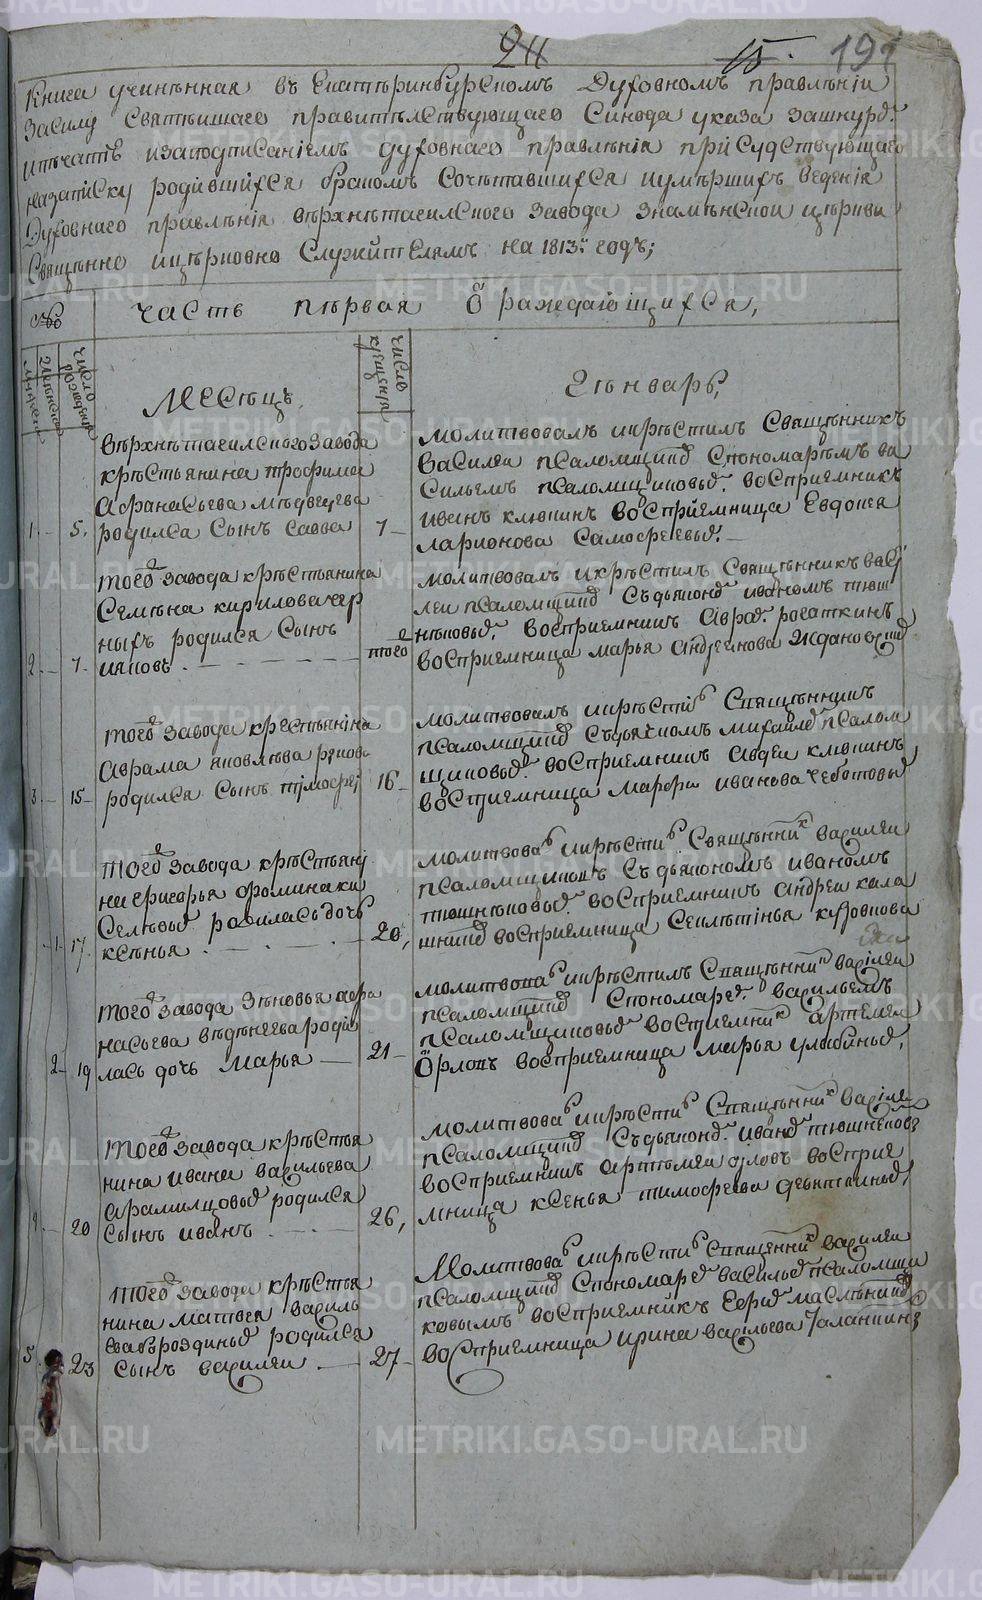 24 15. 191
Книга учиненная въ Екатеринбурскомъ Духовномъ правленiи
Засилу Святѣишаго правителствующаго Синода указа зашнурд.
ипѣчатѣ изаподписанiемъ духовнаго правленiя присудствующаго
назаписку родившихся бракомъ Сочѣтавшихся иумѣршихъ ведѣнiя
Духовнаго правленiя вѣрхнѣтагилского Завода Знамѣнскои цѣркви
Священно ицѣрковно Служителямъ на 1813: годъ;
часть пѣрвая О раждающихся,
число рожденiя
число крещенiя
МЕСѢЦЪ
Генварь,
Вѣрхнѣтагилского Завода
крѣстьянина трофима
Афанасьева мѣдведева
1. 5. родился Сынъ Савва 7
молитвовалъ икрѣстилъ Священникъ
Василеи псаломщик Спономаремъ ва
Сильемъ псаломщиковы. восприемникъ
Иванъ клюкинъ восприемница Евдокея
ларионова Самофеевы.
того завода крѣстьянина
Семѣна кирилова чер
ныхъ родился Сынъ
2. 7. иаковъ. того
молитвовалъ икрѣстилъ Священникъ васи
леи псаломщик Сдьякон иваномъ тюш
нѣковы. восприемникъ Аврд. рогаткинъ
восприемница марья Андреянова Жданов
того завода крестьянина
Аврама яковлева
3. 15. родился Сынъ тимофеi 16
молитвовалъ икрѣсти Священникъ
псаломщик Сдьякономъ михаил псалом
щиковы. восприемникъ Авдеи клюкинъ
восприемница марфа иванова чеботовы
того завода крѣстьянi
на григорья фомина ки
Селѣвы родиласьдочь
1 17. ксѣнья. 20,
молитвова икрѣсти Священни василеи
псаломщиковъ Сдьякономъ иваномъ
тюшнѣковы. восприемникъ Андреи кала
шник восприемница Секлѣтинья
того завода Зѣновья афа
насьева вѣдѣнеева роди
2 19 лась дочь марья 21
молитвова икрѣстилъ Священни василеи
псаломщик Спономаре. васильемъ
псаломщиковы восприемни артемеи
Орловъ восприемница марья улыбины,
того завода крѣстья
нина ивана васильева
арамилцовы родился
4. 20 Сынъ иванъ. 26,
молитвова икрѣсти Священни василеи
псаломщик Сдьяконд. иванд тюшнѣков
восприемникъ артомеи орловъ восприе
мница ксенья тимофеева девяткины,
того завода крѣстья
нина матвея василь
ева броздины родился
5. 23 Сынъ василеи 27
Молитвова икрѣсти Священни василеи
псаломщик Спономаре василье псаломщи
ковымъ восприемникъ Егор масленник
восприемница ирина васильева Галанкин